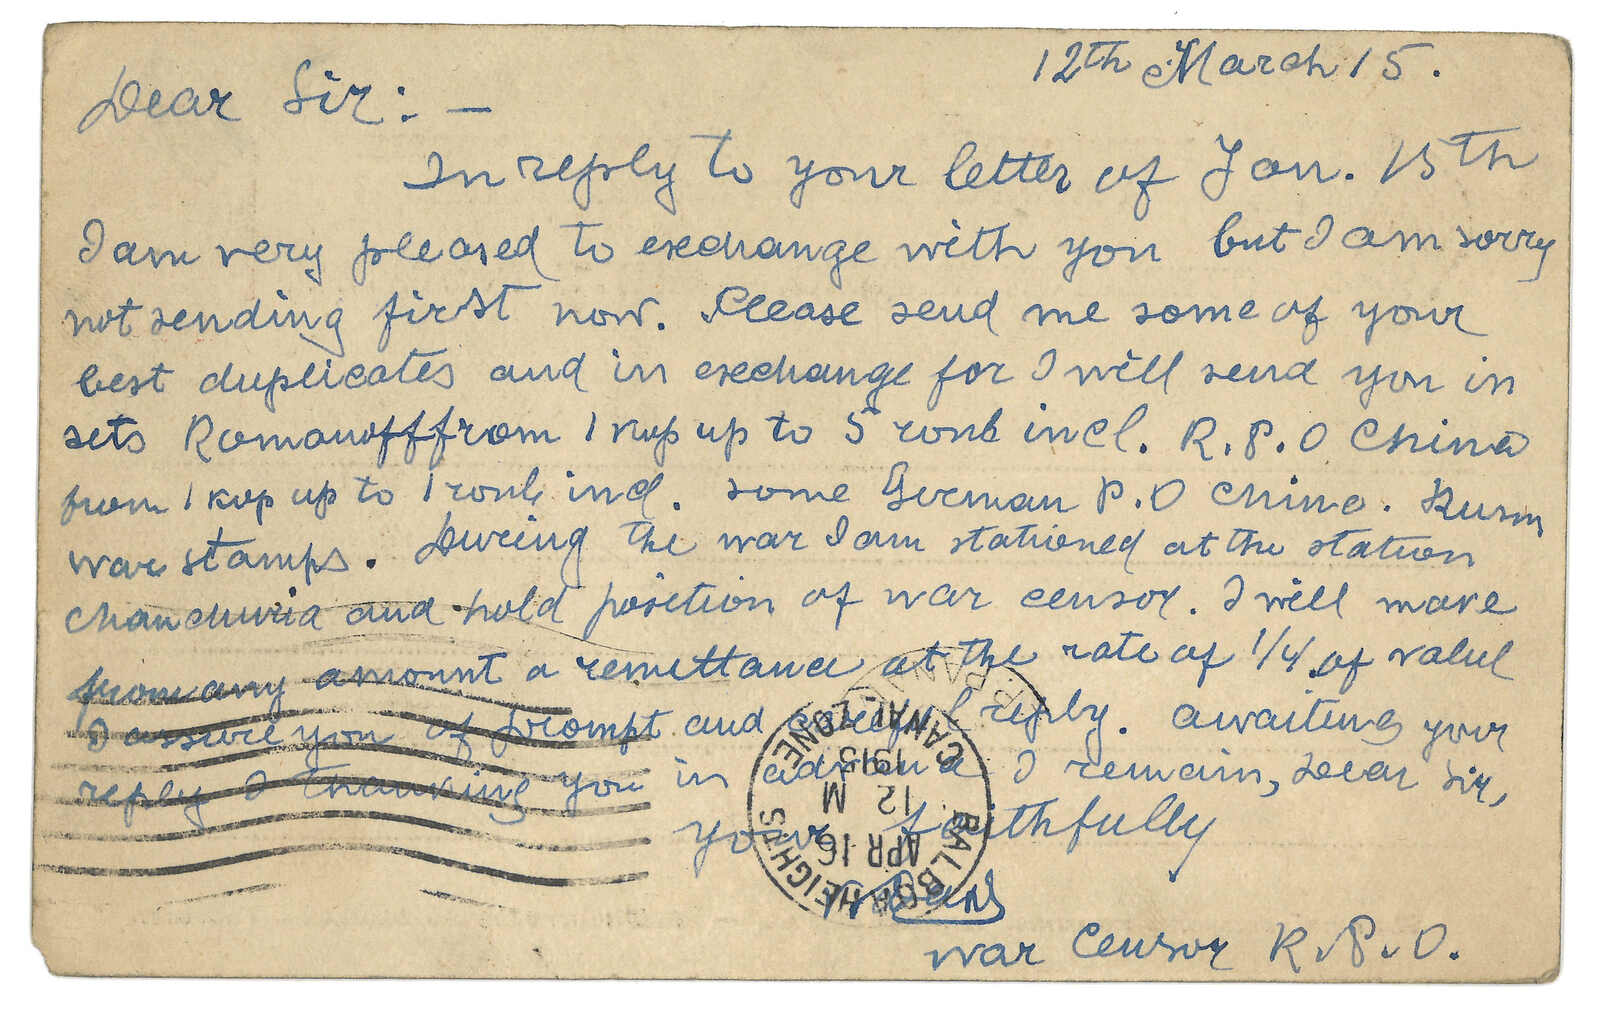 12th March 15.
Dear Sir: —
In reply to your letter of Jan. 15th
I am very pleased to exchange with you but I am sorry
not sending first now. Please send me some of your
best duplicates and in exchange for I will send you in
sets Romanoff from 1 kop up to 5 roub incl. R.P.O China
from 1 kop up to 1 roub incl. some German P.O China.
war stamps. During the war I am stationed at the station
Manchuria and hold position of war censor. I will make
from any amount a remittance at the rate of 1/4 of value
I assure you of prompt and careful reply. awaiting your
reply I thanking you in advance I remain, Dear Sir,
your faithfully
war Censor R.P.O.
BALBOA HEIGHTS
APR 16
12 M
1915
CANAL ZONE